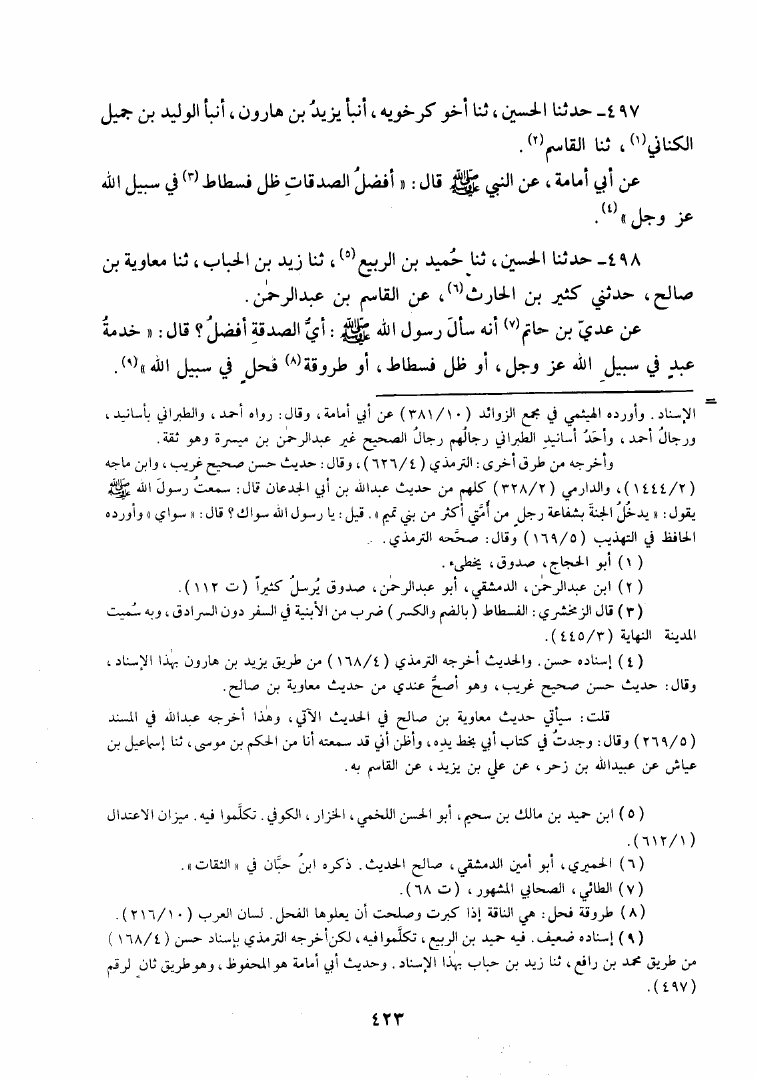 ٤٩٧ـ حدثنا الحسين، ثنا أخو كرخويه، أنبأ يزيدُ بن هارون، أنبأ الوليد بن جميل
الكناني(١)، ثنا القاسم(٢).
عن أبي أمامة، عن النبي ﷺ قال: «أفضلُ الصدقاتِ ظل فسطاط(٣) في سبيل الله
عز وجل»(٤).
٤٩٨ـ حدثنا الحسين، ثنا حُميد بن الربيع(٥)، ثنا زيد بن الحباب، ثنا معاوية بن
صالح، حدثني كثير بن الحارث(٦)، عن القاسم بن عبدالرحمٰن.
عن عديّ بن حاتم(٧) أنه سألَ رسول الله ﷺ: أيُّ الصدقةِ أفضلُ؟ قال: «خدمةُ
عبدٍ في سبيلِ الله عز وجل، أو ظل فسطاط، أو طروقة(٨) فحلٍ في سبيل الله»(٩).
=
الإسناد. وأورده الهيثمي في مجمع الزوائد (٣٨١/١٠) عن أبي أمامة، وقال: رواه أحمد، والطبراني بأسانيد،
ورجالُ أحمد، وأحَدُ أسانيدِ الطبراني رجالُهم رجالُ الصحيح غير عبدالرحمٰن بن ميسرة وهو ثقة.
وأخرجه من طرق أخرى: الترمذي (٦٢٦/٤)، وقال: حديث حسن صحيح غريب، وابن ماجه
(١٤٤٤/٢)، والدارمي (٣٢٨/٢) كلهم من حديث عبدالله بن أبي الجدعان قال: سمعتُ رسولَ الله ﷺ
يقول: «يدخُلُ الجنةَ بشفاعة رجلٍ من أُمَّتي أكثر من بني تميم». قيل: يا رسول الله سواك؟ قال: «سواي» وأورده
الحافظ في التهذيب (١٦٩/٥) وقال: صحَّحه الترمذي.
(١) أبو الحجاج، صدوق، يخطىء.
(٢) ابن عبدالرحمٰن، الدمشقي، أبو عبدالرحمٰن، صدوق يُرسلُ كثيراً (ت ١١٢).
(٣) قال الزمخشري: الفسطاط (بالضم والكسر) ضرب من الأبنية في السفر دون السرادق، وبه سُميت
المدينة النهاية (٤٤٥/٣).
(٤) إسناده حسن. والحديث أخرجه الترمذي (١٦٨/٤) من طريق يزيد بن هارون بهٰذا الإسناد،
وقال: حديث حسن صحيح غريب، وهو أصحُّ عندي من حديث معاوية بن صالح.
قلت: سيأتي حديث معاوية بن صالح في الحديث الآتي، وهٰذا أخرجه عبدالله في المسند
(٢٦٩/٥) وقال: وجدتُ في كتاب أبي بخط يده، وأظن أني قد سمعته أنا من الحكم بن موسى، ثنا إسماعيل بن
عياش عن عبيدالله بن زحر، عن علي بن يزيد، عن القاسم به.
(٥) ابن حميد بن مالك بن سحيم، أبو الحسن اللخمي، الخزار، الكوفي. تكلَّموا فيه. ميزان الاعتدال
(٦١٢/١).
(٦) الحميري، أبو أمين الدمشقي، صالح الحديث. ذكره ابنُ حبَّان في «الثقات».
(٧) الطائي، الصحابي المشهور، (ت ٦٨).
(٨) طروقة فحل: هي الناقة إذا كبرت وصلحت أن يعلوها الفحل. لسان العرب (٢١٦/١٠).
(٩) إسناده ضعيف. فيه حميد بن الربيع، تكلَّموا فيه، لكن أخرجه الترمذي بإسناد حسن (١٦٨/٤)
من طريق محمد بن رافع، ثنا زيد بن حباب بهٰذا الإسناد. وحديث أبي أمامة هو المحفوظ، وهو طريق ثانٍ لرقم
(٤٩٧).
٤٢٣